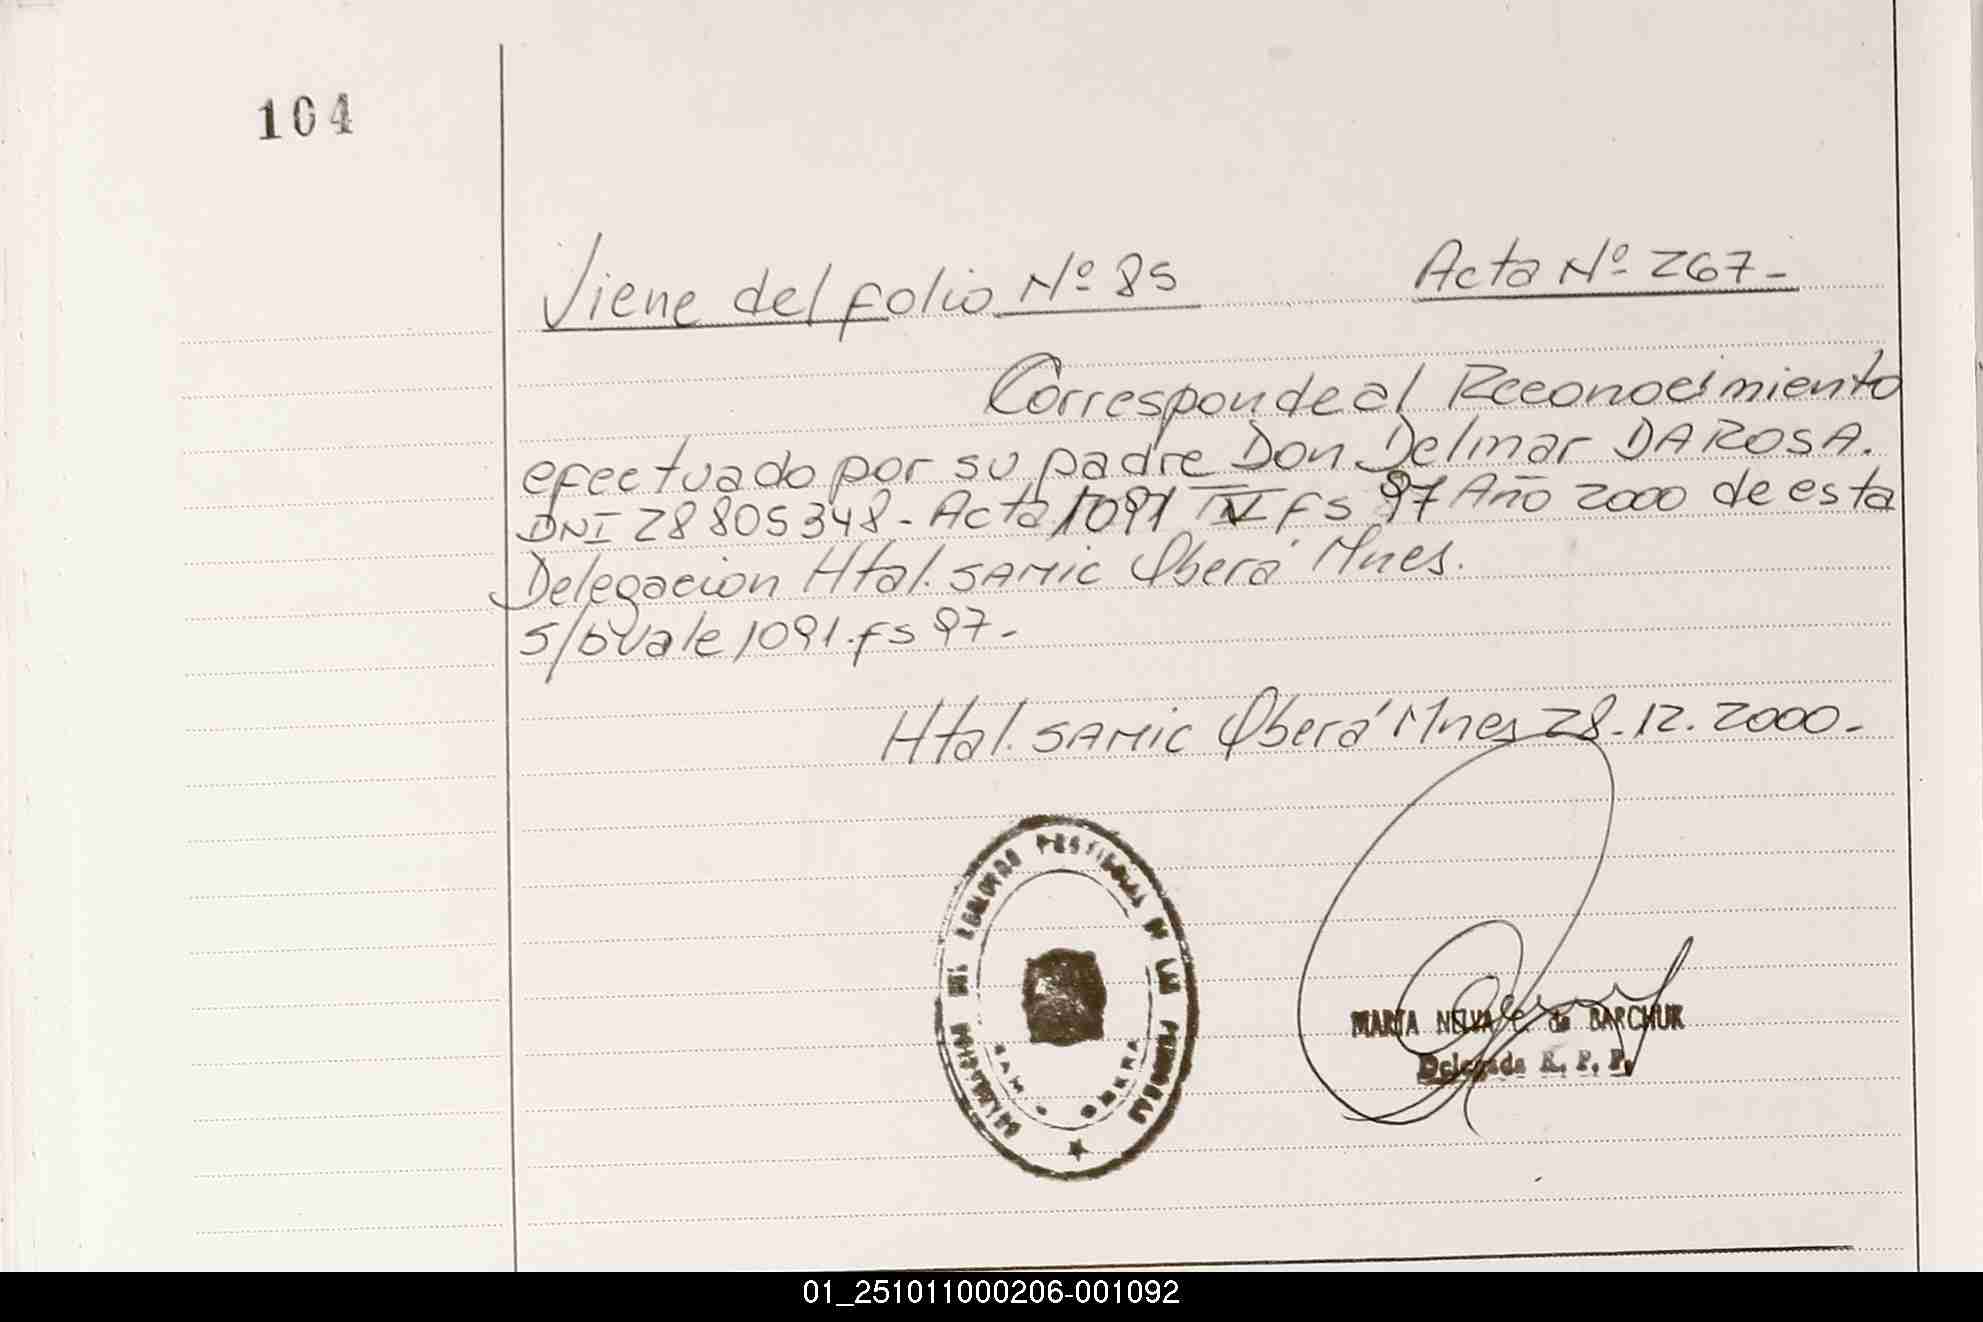 104
Viene del folio Nº 85 Acta Nº 267-
Corresponde al Reconocimiento
efectuado por su padre Don Delmar DA ROSA.
DNI 28805348- Acta 1091 IV fs 97 Año 2000 de esta
Delegacion Htal. SAMIC Oberá Mnes.
S/b Vale 1091. fs 97-
Htal. SAMIC Oberá Mnes 28.12.2000.-
DELEGACION DEL REGISTRO PROVINCIAL DE LAS PERSONAS
OBERA
MARIA NELVA C. de BARCHUK
Delegada R. P. P.
01_251011000206-001092